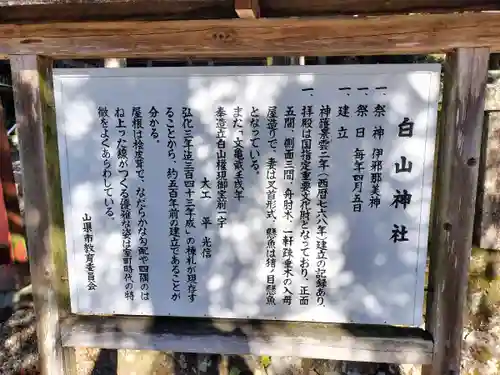 白山神社
一 祭神 伊邪那美神
一 祭日 毎年四月五日
一 建立
神護景雲二年(西暦七六八年)建立の記録あり。
一 拝殿は国指定重要文化財となっており、正面
五間、側面三間、舟肘木、一軒疎垂木の入母
屋造りで、妻は叉首形式、懸魚は猪ノ目懸魚
となっている。
また「文亀貮壬戌年
奉造立白山権現御宝前一宇
大工 平光信
弘化三年迄三百四十三年成」の棟札が現存す
ることから、約五百年前の建立であることが
分かる。
屋根は桧皮茸で、なだらかな勾配や四隅のは
ね上った線がつくる優雅な姿は室町時代の特
徴をよくあらわしている。
山県市教育委員会